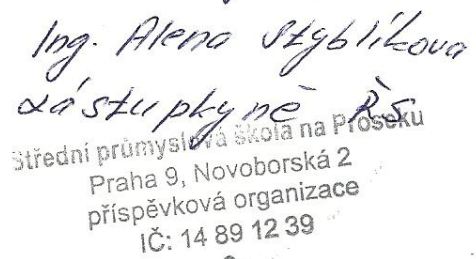 Ing. Alena Styblíkova
zástupkyně ŘŠ
Střední průmyslová škola na Proseku
Praha 9, Novoborská 2
příspěvková organizace
IČ: 14 89 12 39